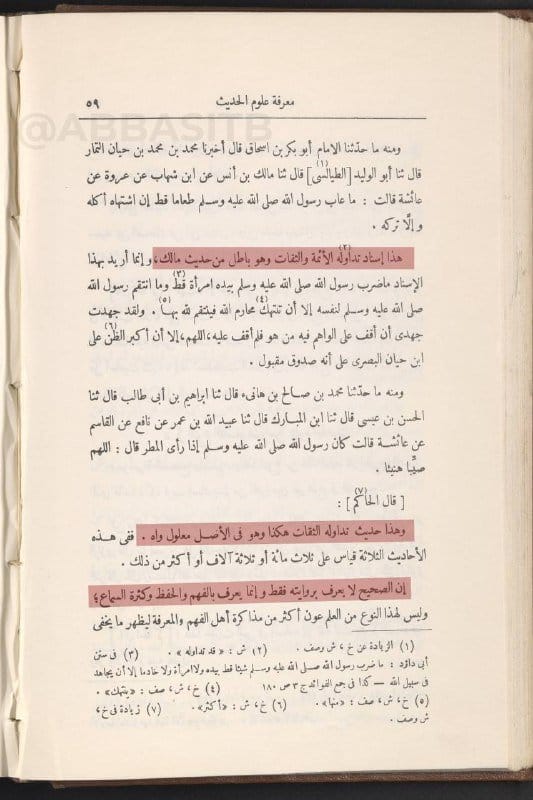 معرفة علوم الحديث ٥٩
@ABBASITB
ومنه ما حدّثنا الامام أبو بكر بن اسحاق قال أخبرنا محمد بن محمد بن حيان التمار
قال ثنا أبو الوليد [الطيالسى](١) قال ثنا مالك بن أنس عن ابن شهاب عن عروة عن
عائشة قالت : ما عاب رسول الله صلى الله عليه وسلم طعاما قط إن اشتهاه أكله
و إلّا تركه .
هذا إسناد تداوله(٢) الأئمة والثقات وهو باطل من حديث مالك، و إنما أريد بهذا
الإسناد ماضرب رسول الله صلى الله عليه وسلم بيده امرأة قط(٣) وما انتقم رسول الله
صلى الله عليه وسلم لنفسه إلا أن تنتهك(٤) محارم الله فينتقم لله بها(٥) . ولقد جهدت
جهدى أن أقف على الواهم فيه من هو فلم أقف عليه، اللهم، إلا أن أكبر(٦) الظنّ على
ابن حيان البصرى على أنه صدوق مقبول .
ومنه ما حدّثنا محمد بن صالح بن هانىء قال ثنا ابراهيم بن أبى طالب قال ثنا
الحسن بن عيسى قال ثنا ابن المبارك قال ثنا عبيد الله بن عمر عن نافع عن القاسم
عن عائشة قالت كان رسول الله صلى الله عليه وسلم إذا رأى المطر قال : اللهم
صيّبا هنيئا .
[ قال الحاكم(٧) ] :
وهذا حديث تداوله الثقات هكذا وهو فى الأصل معلول واه . ففى هذه
الأحاديث الثلاثة قياس على ثلاث مائة أو ثلاثة آلاف أو أكثر من ذلك .
إن الصحيح لا يعرف بروايته فقط و إنما يعرف بالفهم والحفظ وكثرة السماع؛
وليس لهذا النوع من العلم عون أكثر من مذاكرة أهل الفهم والمعرفة ليظهر ما يخفى
(١) الزيادة عن خ ، ش وصف . (٢) ش : « قد تداوله » . (٣) فى سنن
أبى داؤد : ما ضرب رسول الله صلى الله عليه وسلم شيئا قط بيده ولا امرأة ولا خادما إلا أن يجاهد
فى سبيل الله — كذا فى جمع الفوائد ج ٣ ص ١٨٠ (٤) خ ، ش ، صف : « ينتهك » .
(٥) خ ، ش ، صف : «منها» . (٦) خ ، ش : «أكثر» . (٧) زيادة فى خ ،
ش وصف .